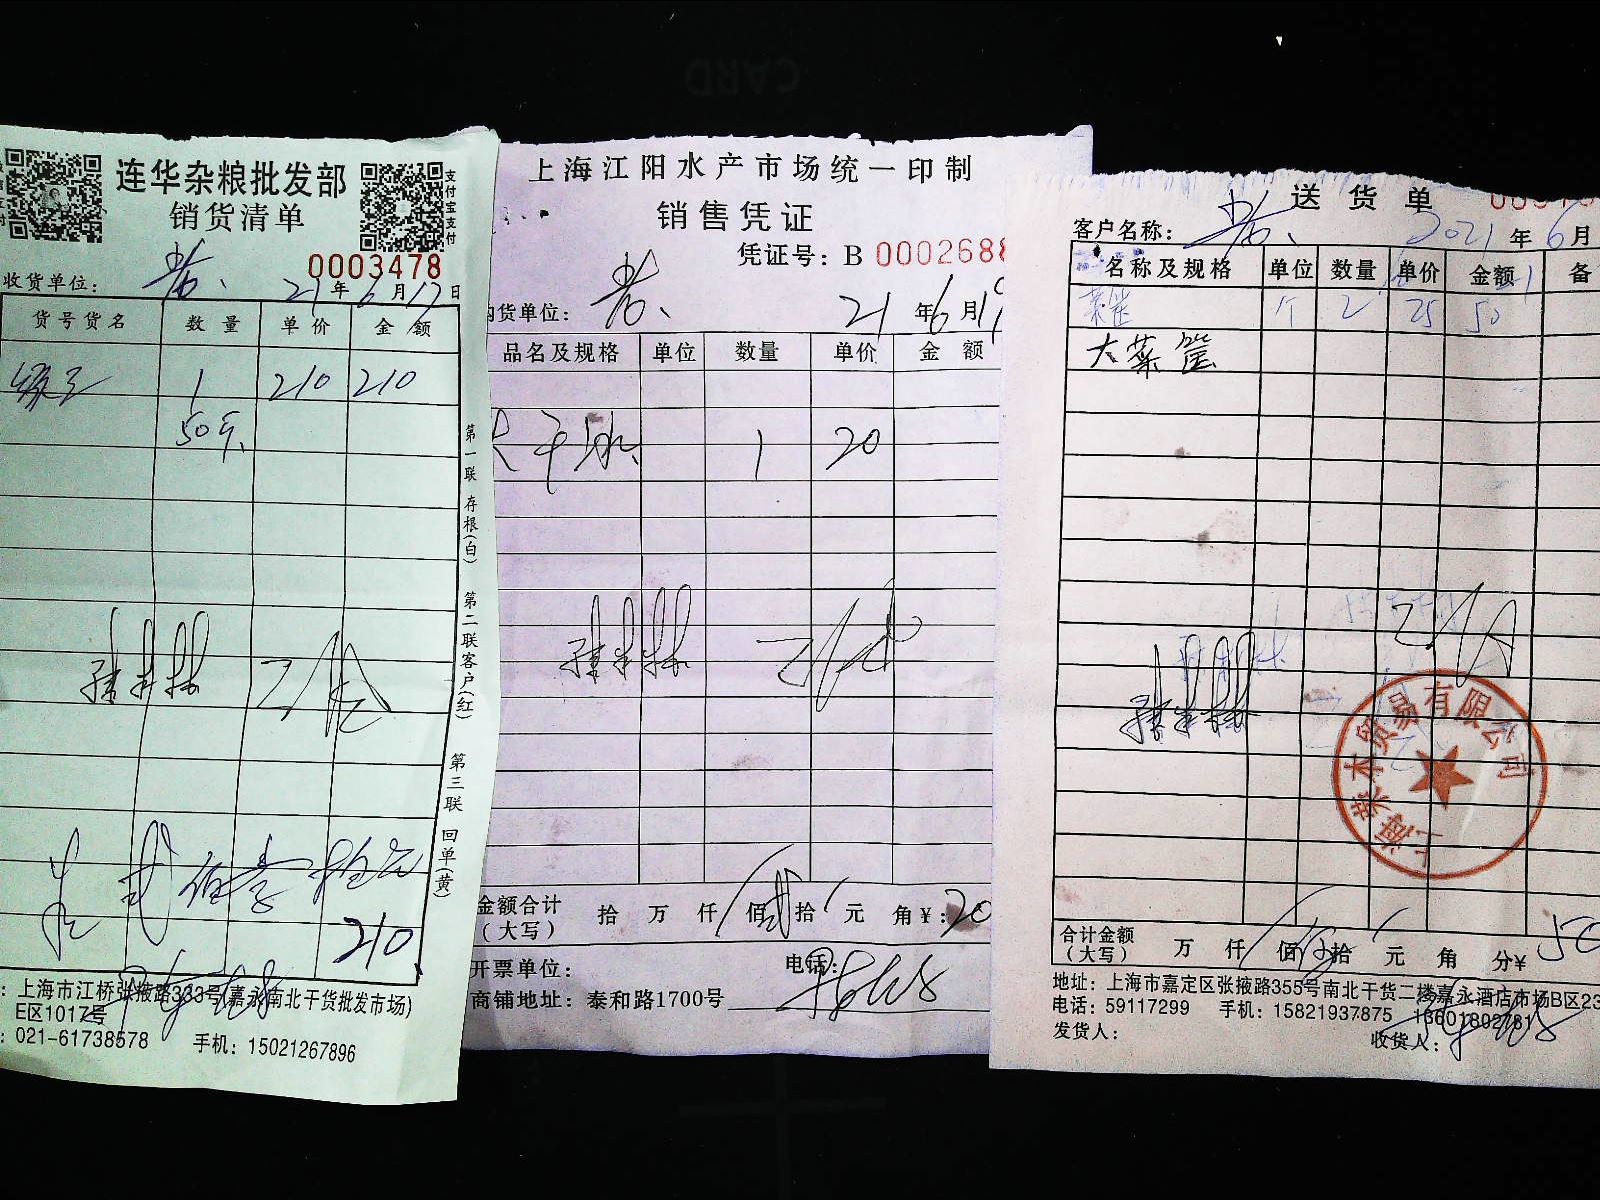 连华杂粮批发部
销货清单
支付宝支付
0003478
收货单位：
21年6月17日
货号货名 数量 单价 金额
1 210 210
50斤
第一联 存根(白) 第二联 客户(红) 第三联 回单(黄)
210
：上海市江桥张掖路333号(嘉永南北干货批发市场)
E区1017号
：021-61738578 手机：15021267896
上海江阳水产市场统一印制
销售凭证
凭证号：B 0002688
购货单位：
21年6月19
品名及规格 单位 数量 单价 金额
1 20
金额合计(大写) 拾 万 仟 佰 贰拾 元 角 ¥：20
开票单位： 电话：
商铺地址：泰和路1700号
送货单
客户名称： 2021年6月
名称及规格 单位 数量 单价 金额 备
菜筐 个 2 25 50
大菜筐
上海荣木贸易有限公司
合计金额(大写) 万 仟 佰 拾 元 角 分¥ 50
地址：上海市嘉定区张掖路355号南北干货二楼嘉永酒店市场B区23
电话：59117299 手机：15821937875 13601802781
发货人： 收货人：